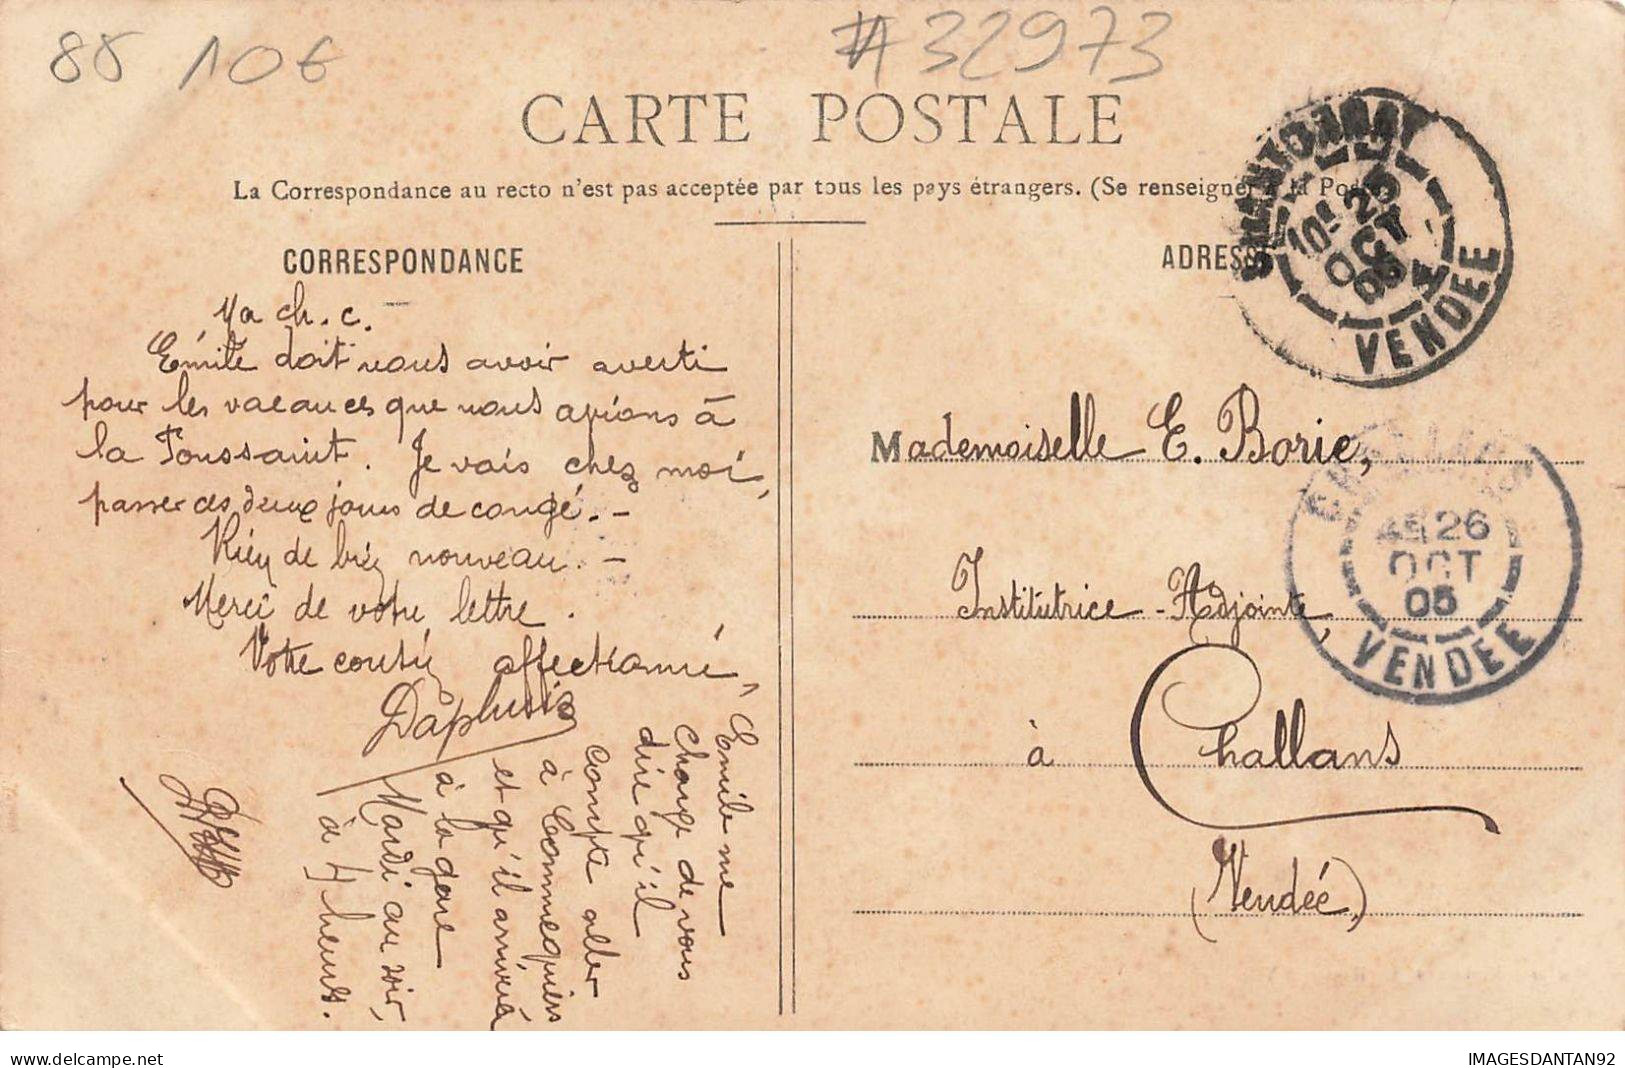 88 10€
#32973
CARTE POSTALE
La Correspondance au recto n'est pas acceptée par tous les pays étrangers. (Se renseigner à la Poste)
CORRESPONDANCE
Ma ch. c.
Emile doit nous avoir averti
pour les vacances que nous apions à
la Toussaint. Je vais chez moi,
passer ces deux jours de congé. -
Rien de bien nouveau. -
Merci de votre lettre.
Votre cousin affectionné,
Daphnis
Emile me
charge de vous
dire qu'il
compte aller
à Commequiers
et qu'il arrivera
à la gare
Mardi au soir,
à 4 heures.
ADRESSE
CHANTONNAY
10E 25
OCT
05
VENDÉE
Mademoiselle E. Borie,
Institutrice-Adjointe,
à Challans
(Vendée)
CHALLANS
26
OCT
05
VENDÉE
delcampe.net
IMAGESDANTAN92